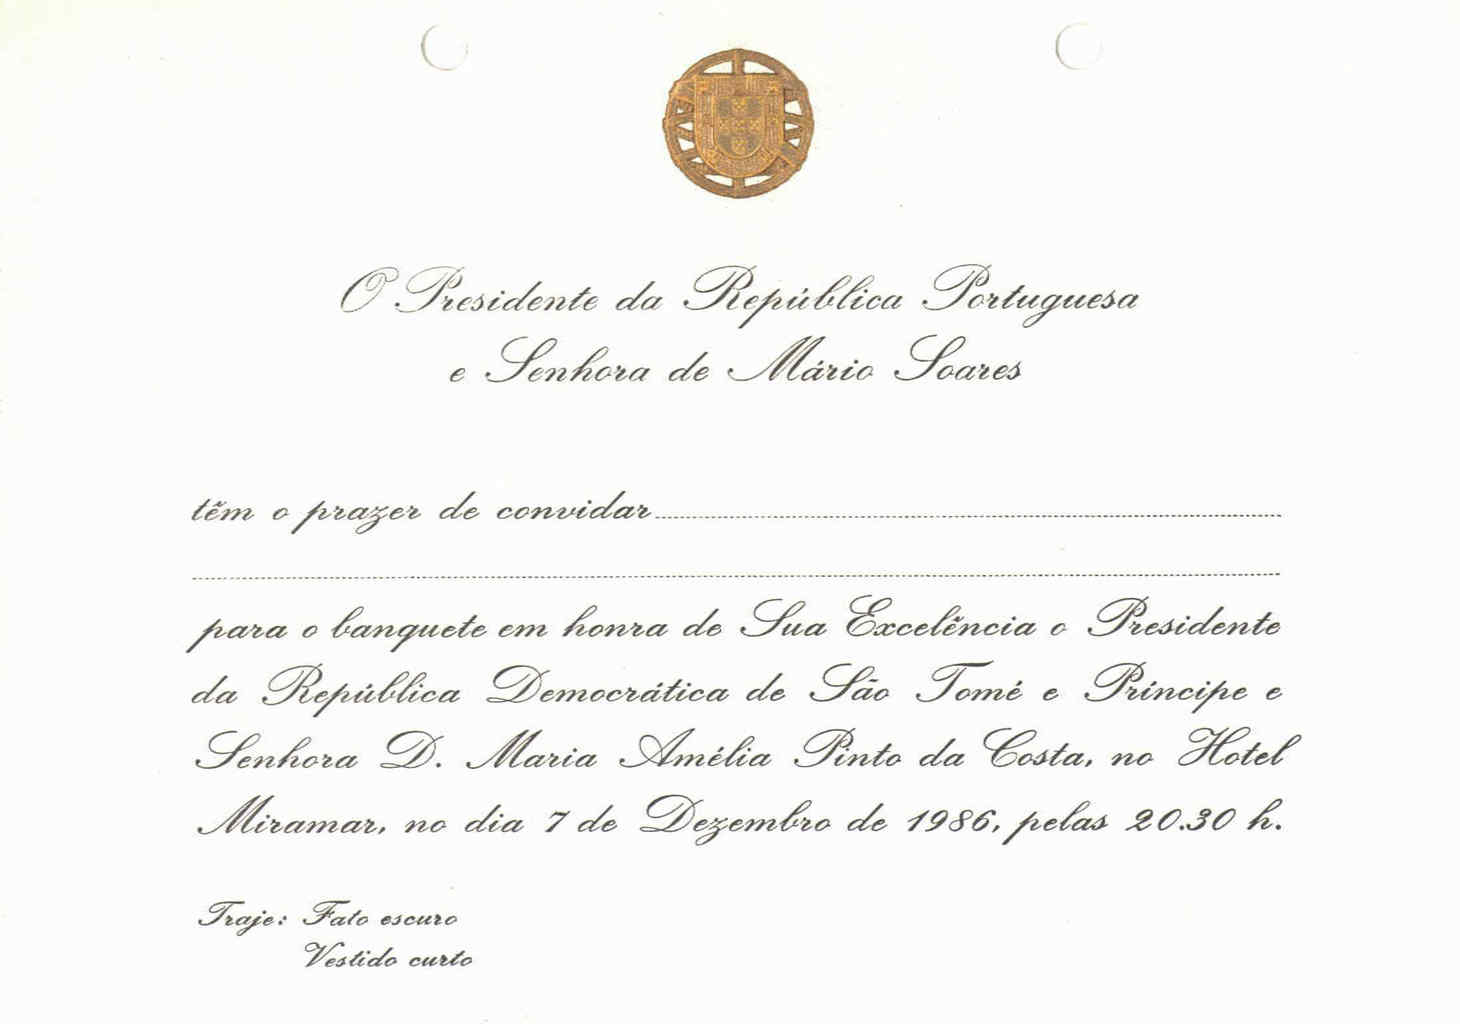 O Presidente da República Portuguesa
e Senhora de Mário Soares
têm o prazer de convidar
para o banquete em honra de Sua Excelência o Presidente
da República Democrática de São Tomé e Príncipe e
Senhora D. Maria Amélia Pinto da Costa, no Hotel
Miramar, no dia 7 de Dezembro de 1986, pelas 20.30 h.
Traje: Fato escuro
Vestido curto